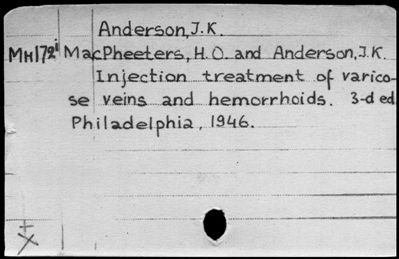 Anderson, J. K.
MH172i MacPheeters, H. O. and Anderson, J. K.
Injection treatment of varico-
se veins and hemorrhoids. 3-d ed
Philadelphia, 1946.